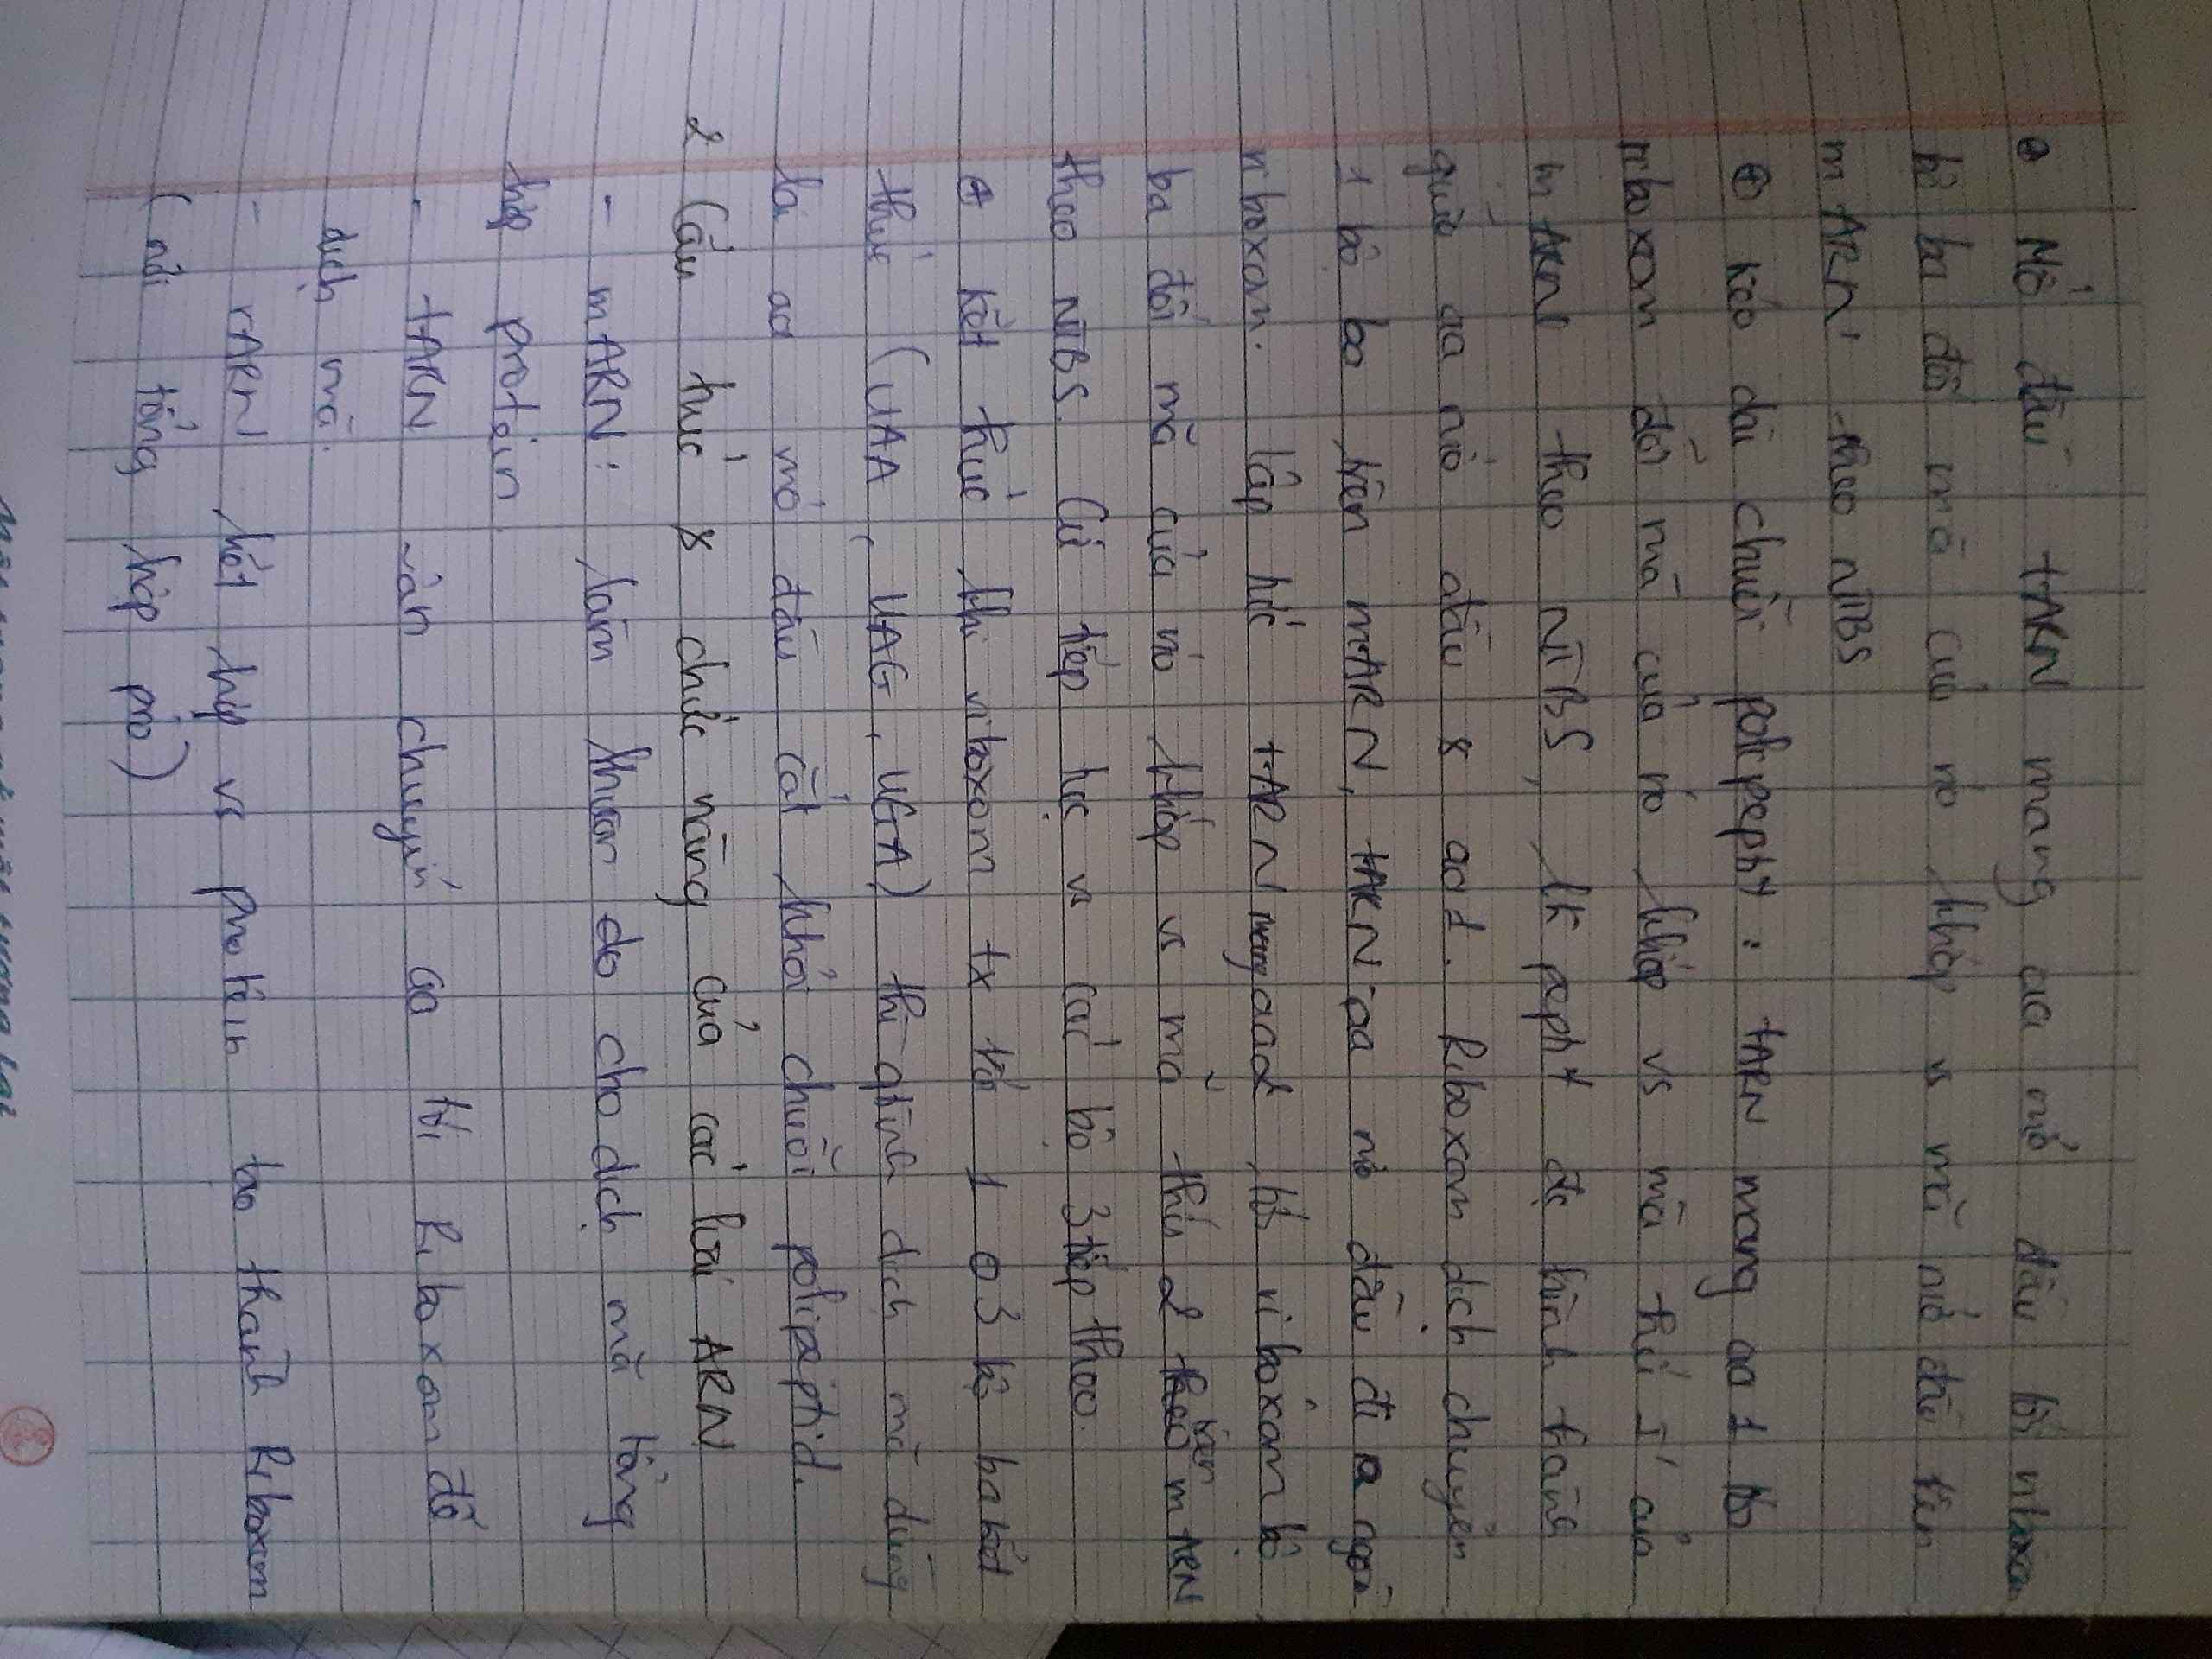 ⊕ Mở đầu tARN mang aa mở đầu tới riboxom
bộ ba đối mã của nó khớp vs mã mở đầu trên
mARN theo NTBS
⊕ kéo dài chuỗi polipept : tARN mang aa1 tới
riboxom đối mã của nó khớp vs mã thứ I của
mARN theo NTBS, lk pept đc hình thành
giữa aa mở đầu & aa1. Riboxom dịch chuyển
1 bộ ba trên mARN, tARN aa mở đầu đi ra ngoài
riboxom. lập tức tARN mang aa2 tới riboxom bộ
ba đối mã của nó khớp vs mã thứ 2 trên mARN
theo NTBS. Cứ tiếp tục vs các bộ 3 tiếp theo.
⊕ kết thúc khi riboxom tx tới 1 o 3 bộ ba kết
thúc (UAA, UAG, UGA) thì qtrình dịch mã dừng
lại aa mở đầu cắt khỏi chuỗi polipeptid.
2 Cấu trúc & chức năng của các loại ARN
- mARN: làm khuôn do cho dịch mã tổng
hợp protein.
- tARN vận chuyển aa tới Riboxom để
dịch mã.
- rARN kết hợp vs protein tạo thành Riboxom
(nơi tổng hợp pro)